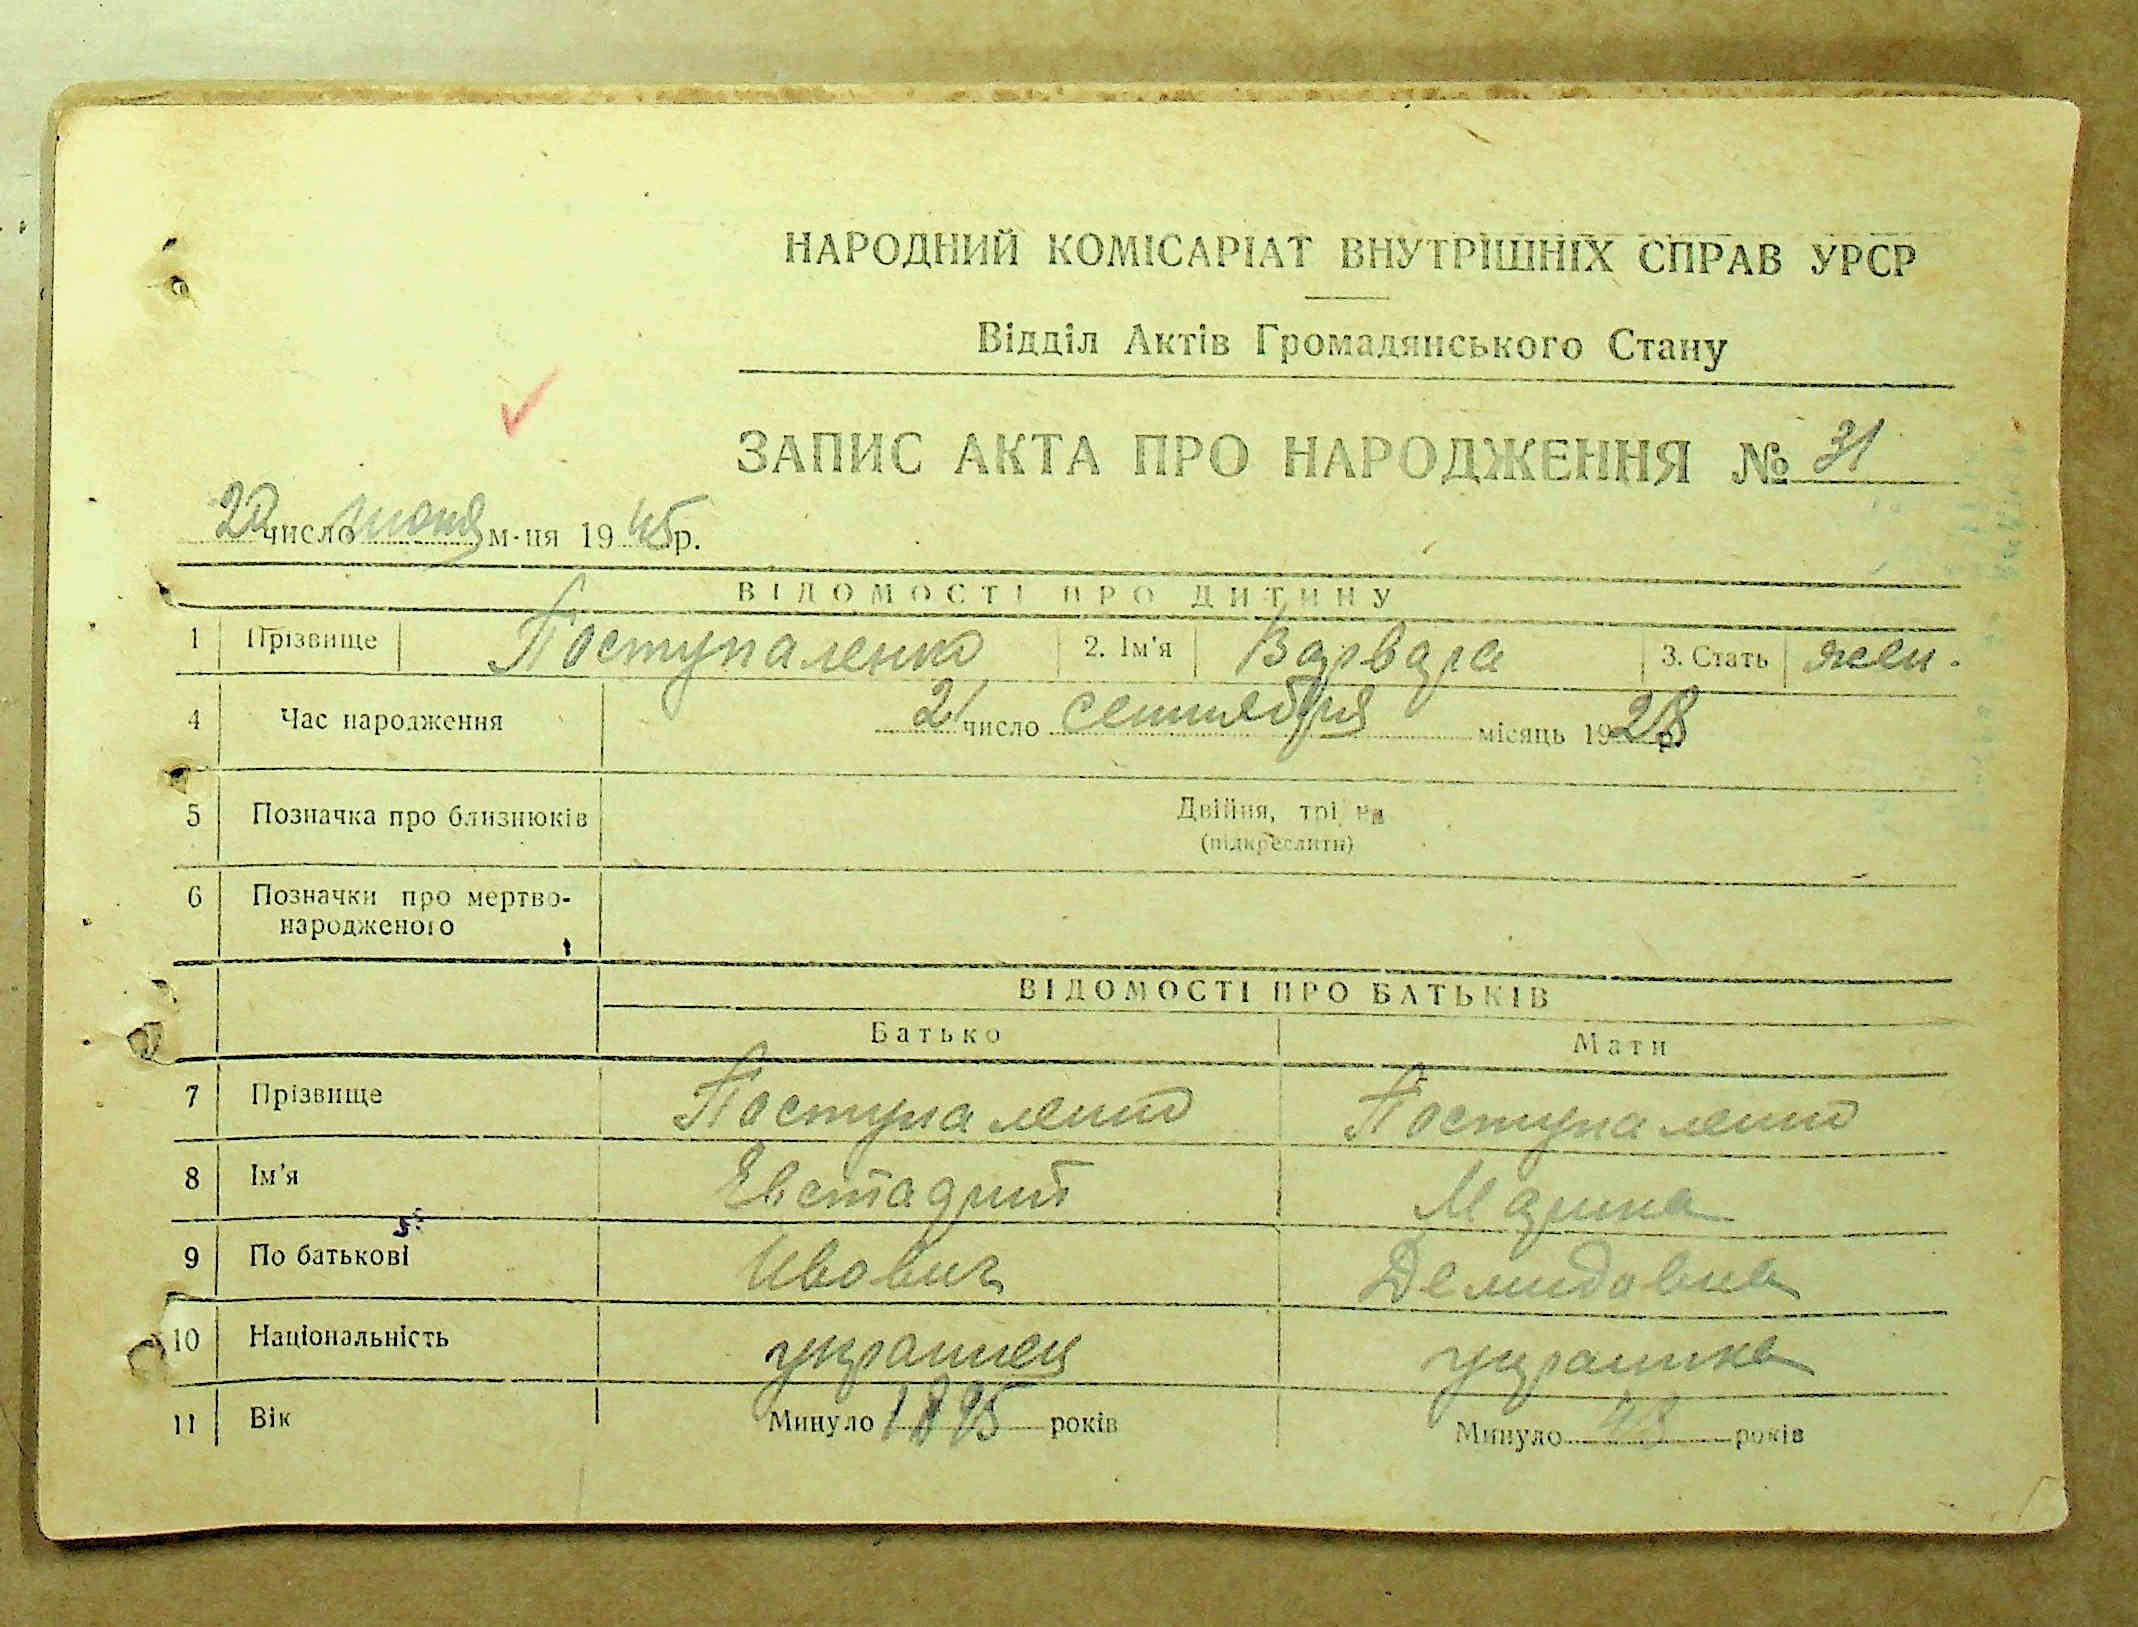 НАРОДНИЙ КОМІСАРІАТ ВНУТРІШНІХ СПРАВ УРСР
Відділ Актів Громадянського Стану
ЗАПИС АКТА ПРО НАРОДЖЕННЯ № 31
20 число июня м-ця 1945 р.
ВІДОМОСТІ ПРО ДИТИНУ
1 Прізвище Поступаленко 2. Ім'я Варвара 3. Стать жен.
4 Час народження 21 число сентября місяць 1928 р.
5 Позначка про близнюків Двійня, трійня
(підкреслити)
6 Позначки про мертво-
народженого
ВІДОМОСТІ ПРО БАТЬКІВ
Батько Мати
7 Прізвище Поступаленко Поступаленко
8 Ім'я Марина
9 По батькові Ивович Демидовна
10 Національність украинец украинка
11 Вік Минуло 1895 років Минуло років